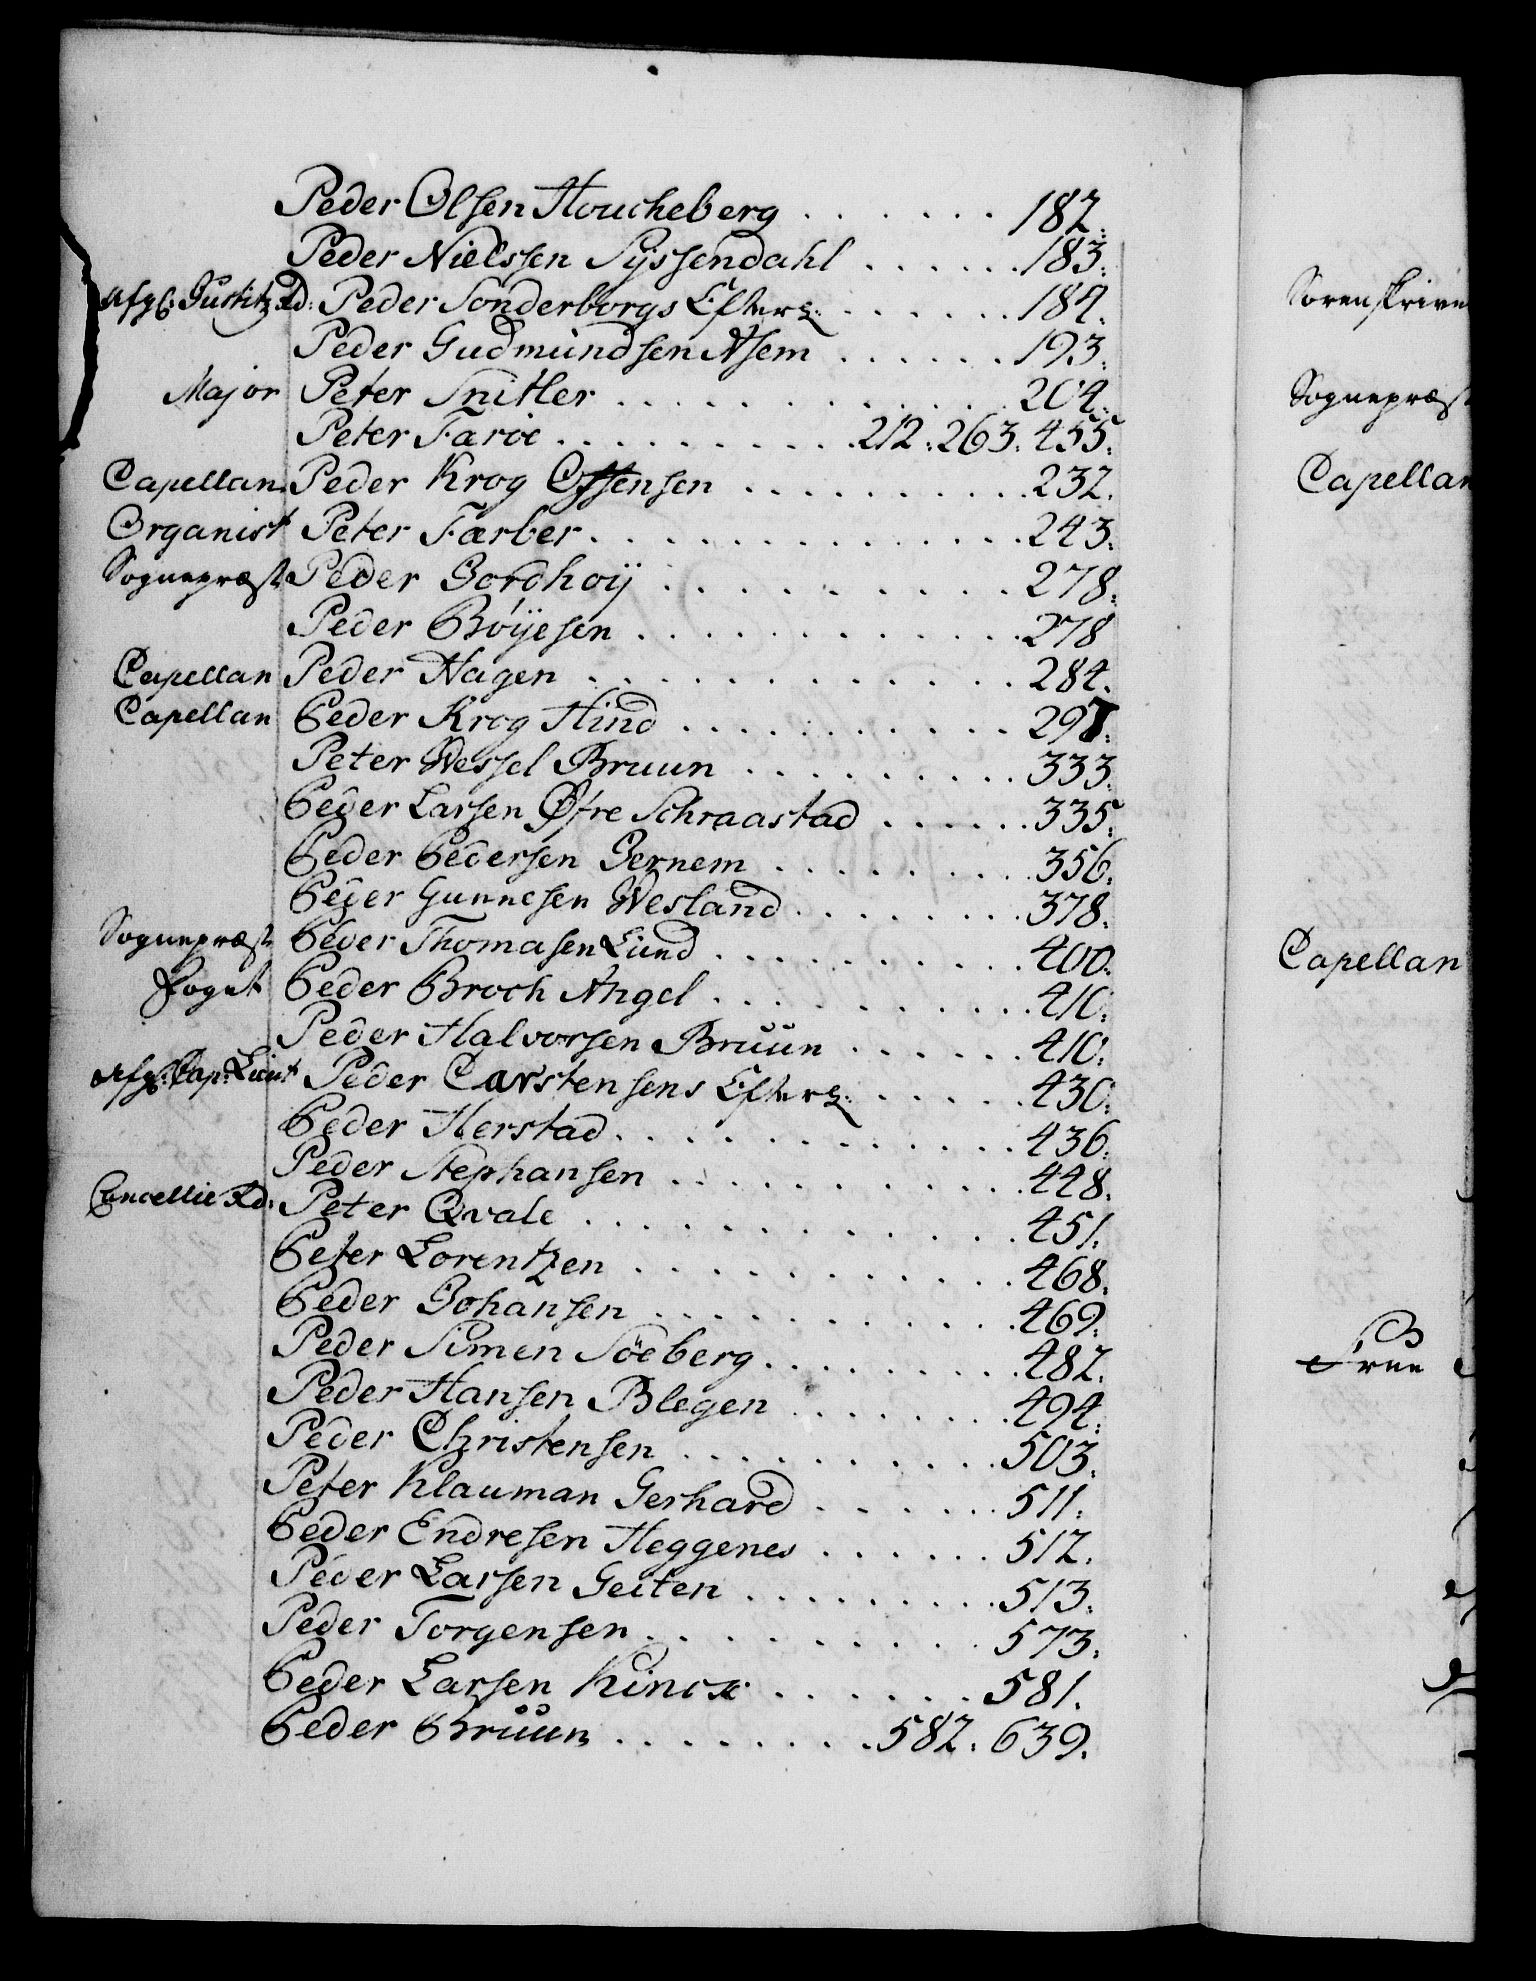 Peder Olsen Houcheberg . . . . . . . 182.
Peder Nielssen Sÿssendahl . . . . . . 183.
Afg: Justitz Rd: Peder Sonderborgs Efterl: . . . . . . 184.
Peder Gudmundsen Asem . . . . . . 193.
Major Peter Snitler . . . . . . . . . . . . 204.
Peter Faröe . . . . . . . . . . 212. 263. 455.
Capellan Peder Krog Offensen . . . . . . . . . . 232.
Organist Peter Farber . . . . . . . . . . . . . . 243.
Sognepræst Peder Jordhoij . . . . . . . . . . . 278.
Peder Böÿesen . . . . . . . . . . . . 278
Capellan Peder Hagen . . . . . . . . . . . . . 284.
Capellan Peder Krog Hind . . . . . . . . . . . 297.
Peter Wessel Bruun . . . . . . . . . 333.
Peder Larsen Øfre Schraastad . . . . . . 335.
Peder Pedersen Jernem . . . . . . . . . . 356.
Peder Gunnesen Wesland . . . . . . . . 378.
Sognepræst Peder Thomasen Lund . . . . . . . . . . 400.
Foget Peder Broch Angel . . . . . . . . . . 410.
Peder Halvorsen Bruun . . . . . . 410.
Afg: Cap: Lieut Peder Carstensens Efterl: . . . . . . 430.
Peder Herstad . . . . . . . . . . . . . 436.
Peder Stephansen . . . . . . . . . . . 448.
Cancellie Rd: Peter Qvale . . . . . . . . . . . . . 451.
Peter Lorentzen . . . . . . . . . . . . 468.
Peder Johansen . . . . . . . . . . . 469.
Peder Simen Söeberg . . . . . . . . 482.
Peder Hansen Blegen . . . . . . . . 494.
Peder Christensen . . . . . . . . . . 503.
Peter Klauman Gerhard . . . . . . . 511.
Peder Endresen Heggenes . . . . . . 512.
Peder Larsen Geiten . . . . . . . . . 513.
Peder Torgensen . . . . . . . . . . 573.
Peder Larsen Kinck . . . . . . . 581.
Peder Bruun . . . . . . . . 582. 639.
Sorenskrive
Sognepræst
Capellan
Capellan
Frue